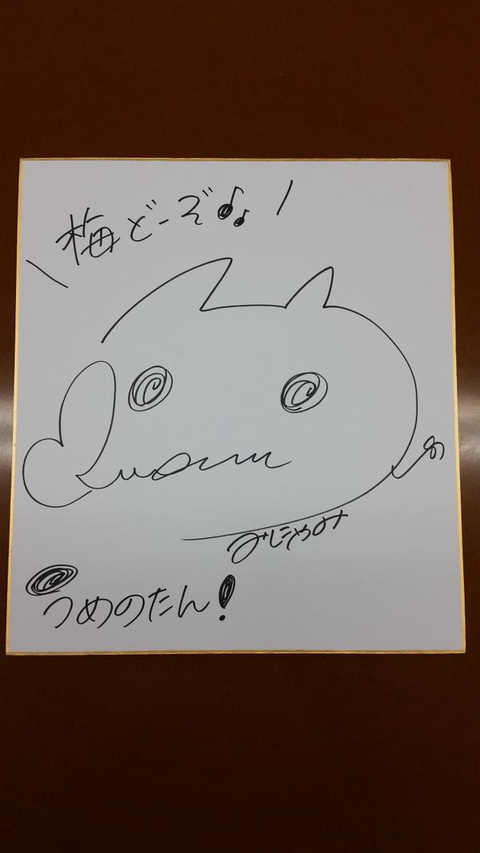 \ 梅どーぞ♪♪ /
みにゃみ
うめのたん!